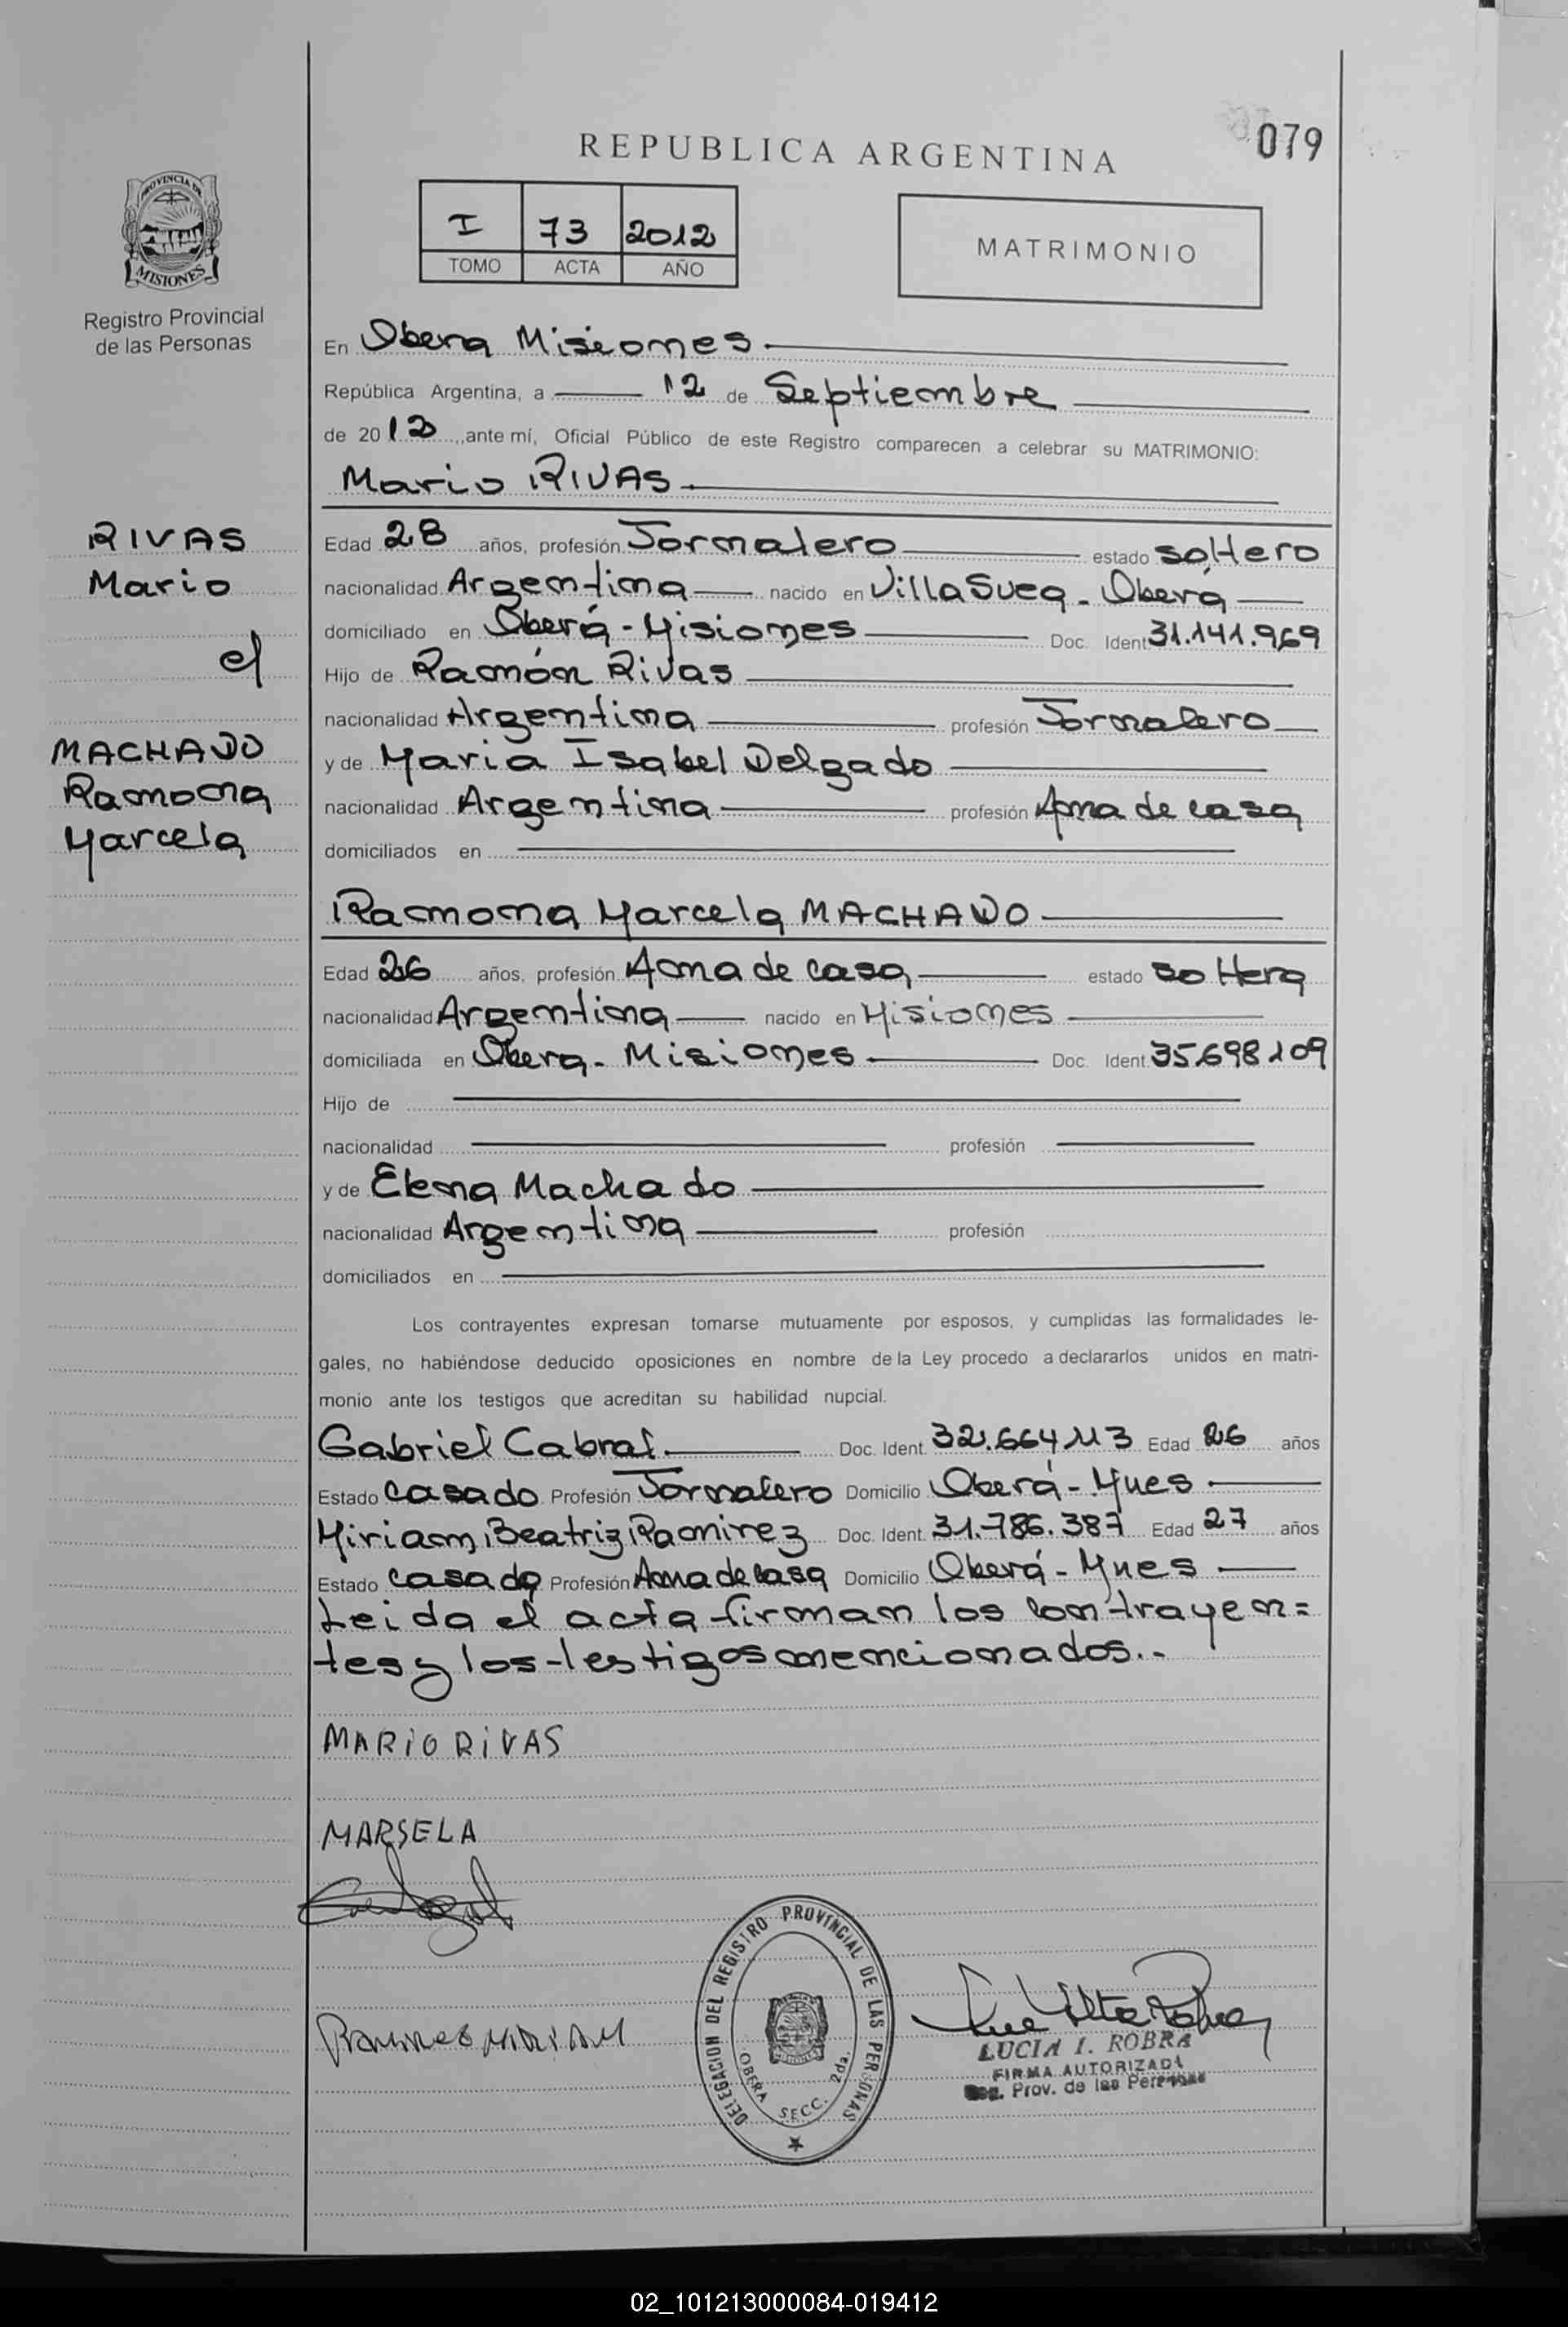 079
REPUBLICA ARGENTINA
I 73 2012
TOMO ACTA AÑO
MATRIMONIO
PROVINCIA DE
MISIONES
Registro Provincial
de las Personas
En Obera Misiones
República Argentina, a 12 de Septiembre
de 2012, ante mí, Oficial Público de este Registro comparecen a celebrar su MATRIMONIO:
Mario RIVAS
RIVAS
Mario
MACHADO
Ramona
Marcela
Edad 28 años, profesión Jornalero estado soltero
nacionalidad Argentina nacido en Villa Sueca - Oberá
domiciliado en Oberá - Misiones Doc. Ident 31.141.969
Hijo de Ramón Rivas
nacionalidad Argentina profesión Jornalero
y de Maria Isabel Delgado
nacionalidad Argentina profesión Ama de casa
domiciliados en
Ramona Marcela MACHADO
Edad 26 años, profesión Ama de casa estado soltera
nacionalidad Argentina nacido en Misiones
domiciliada en Obera - Misiones Doc. Ident. 35.698109
Hijo de
nacionalidad profesión
y de Elena Machado
nacionalidad Argentina profesión
domiciliados en
Los contrayentes expresan tomarse mutuamente por esposos, y cumplidas las formalidades le-
gales, no habiéndose deducido oposiciones en nombre de la Ley procedo a declararlos unidos en matri-
monio ante los testigos que acreditan su habilidad nupcial.
Gabriel Cabral. Doc. Ident. 32.664.113 Edad 26 años
Estado casado Profesión Jornalero Domicilio Oberá - Mnes
Miriam Beatriz Ramirez Doc. Ident. 31.786.387 Edad 27 años
Estado casada Profesión Ama de casa Domicilio Oberá - Mnes
Leida el acta firman los contrayen=
tes y los testigos mencionados..
MARIO RIVAS
MARSELA
MIRIAM
DELEGACION DEL REGISTRO PROVINCIAL DE LAS PERSONAS
OBERA SECC. 2da.
LUCIA I. ROBRA
FIRMA AUTORIZADA
Reg. Prov. de las Personas
02_101213000084-019412